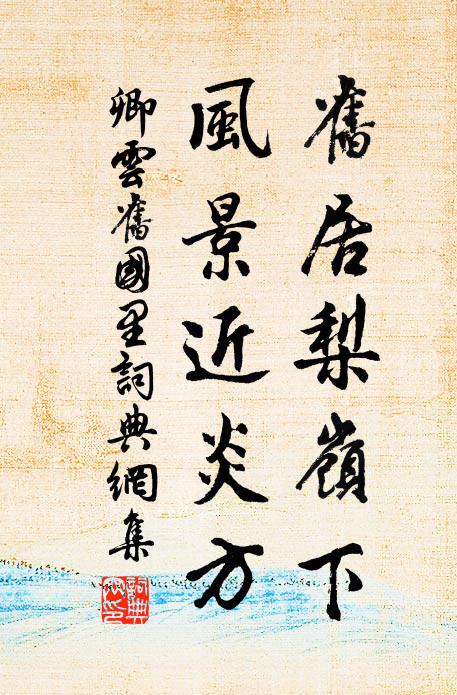 舊居梨嶺下
風景近炎方
卿雲舊國里詞典網集